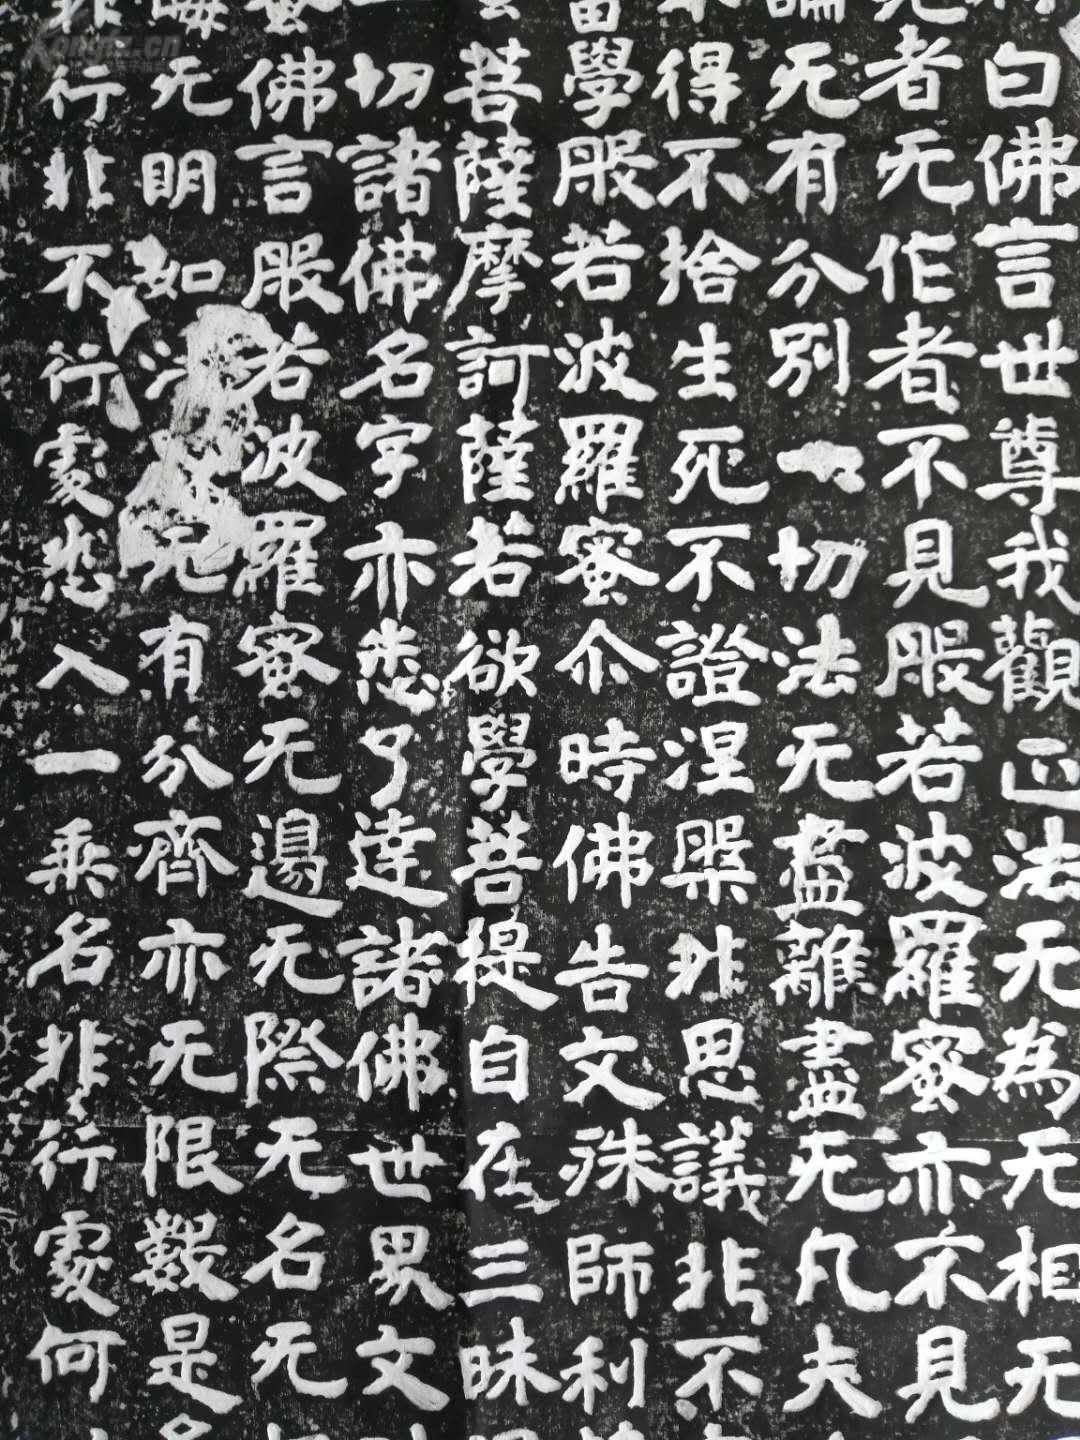 白佛言世尊我觀正法无為无相无
者无作者不見般若波羅蜜亦不見
无有分別一切法无盡離盡无凡夫
得不捨生死不證涅槃非思議非不
學般若波羅蜜尒時佛告文殊師利
菩薩摩訶薩若欲學菩提自在三昧
切諸佛名字亦悉了達諸佛世界文
佛言般若波羅蜜无邊无際无名无
无明如法 完有分齊亦无限數是
行非不行處悉入一乘名非行處何
Kongfz.cn